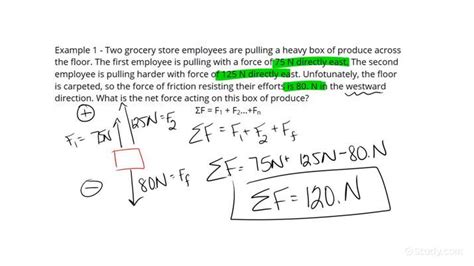 Example 1 - Two grocery store employees are pulling a heavy box of produce across
the floor. The first employee is pulling with a force of 75 N directly east. The second
employee is pulling harder with force of 125 N directly east. Unfotunately, the floor
is carpeted, so the force of friction resisting their efforts is 80. N in the westward
direction. What is the net force acting on this box of produce?
ΣF = F1 + F2...+Fn
+
F₁ = 75N
125N = F₂
ΣF = F₁ + F₂ + F_f
−
80N = F_f
ΣF = 75N + 125N - 80.N
ΣF = 120.N
Study.com